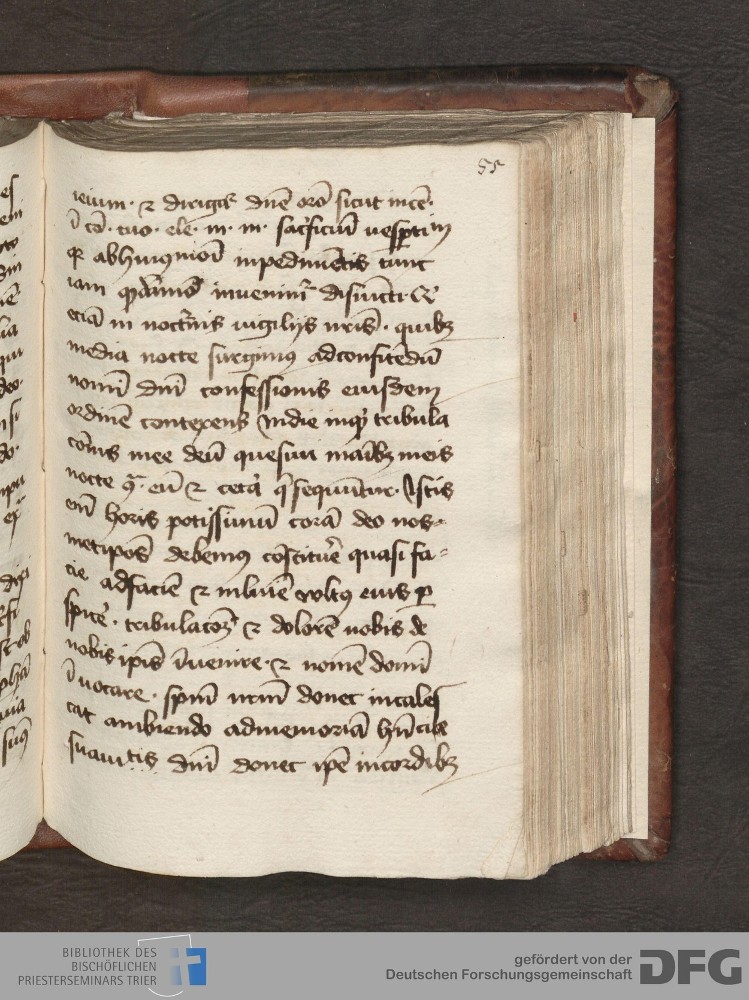 55
ieium · et dirigat᷑ dn̄e orō sicut incē ·
ī cō · tuo · ele · m · m · sac̓ficiū uesp̱tin̄
inpedimētis tunc
iam inuenim᷑ disiuncti
etiā in noct̓nis uigilijs nr̄is · quibꝫ
media nocte surgimꝰ adconfitēdū
nomī dnī confessionis eiusdem
ordinē contexens Indie inqͥ tribula
cōnis mee deū quesiui manibꝫ meis
nocte ꝯͣ · eū et cet̓a q̄ sequūtur · Istis
enī horis potissimū corā deo nos-
metipos̄ debemꝰ cōstituē quasi fa-
cie adfaciē et inlumē voltꝰ eius ꝑ
spicē · tribulacōꝫ et dolorē nobis de
nobis ip̄is īuenire · et nomē domī
īuocare · sp̄m nr̄m donec incales
cat ambiendo admemoriā
suauitis dnī donec ip̄e incordibꝫ
BIBLIOTHEK DES
BISCHÖFLICHEN
PRIESTERSEMINARS TRIER
gefördert von der
Deutschen Forschungsgemeinschaft
DFG